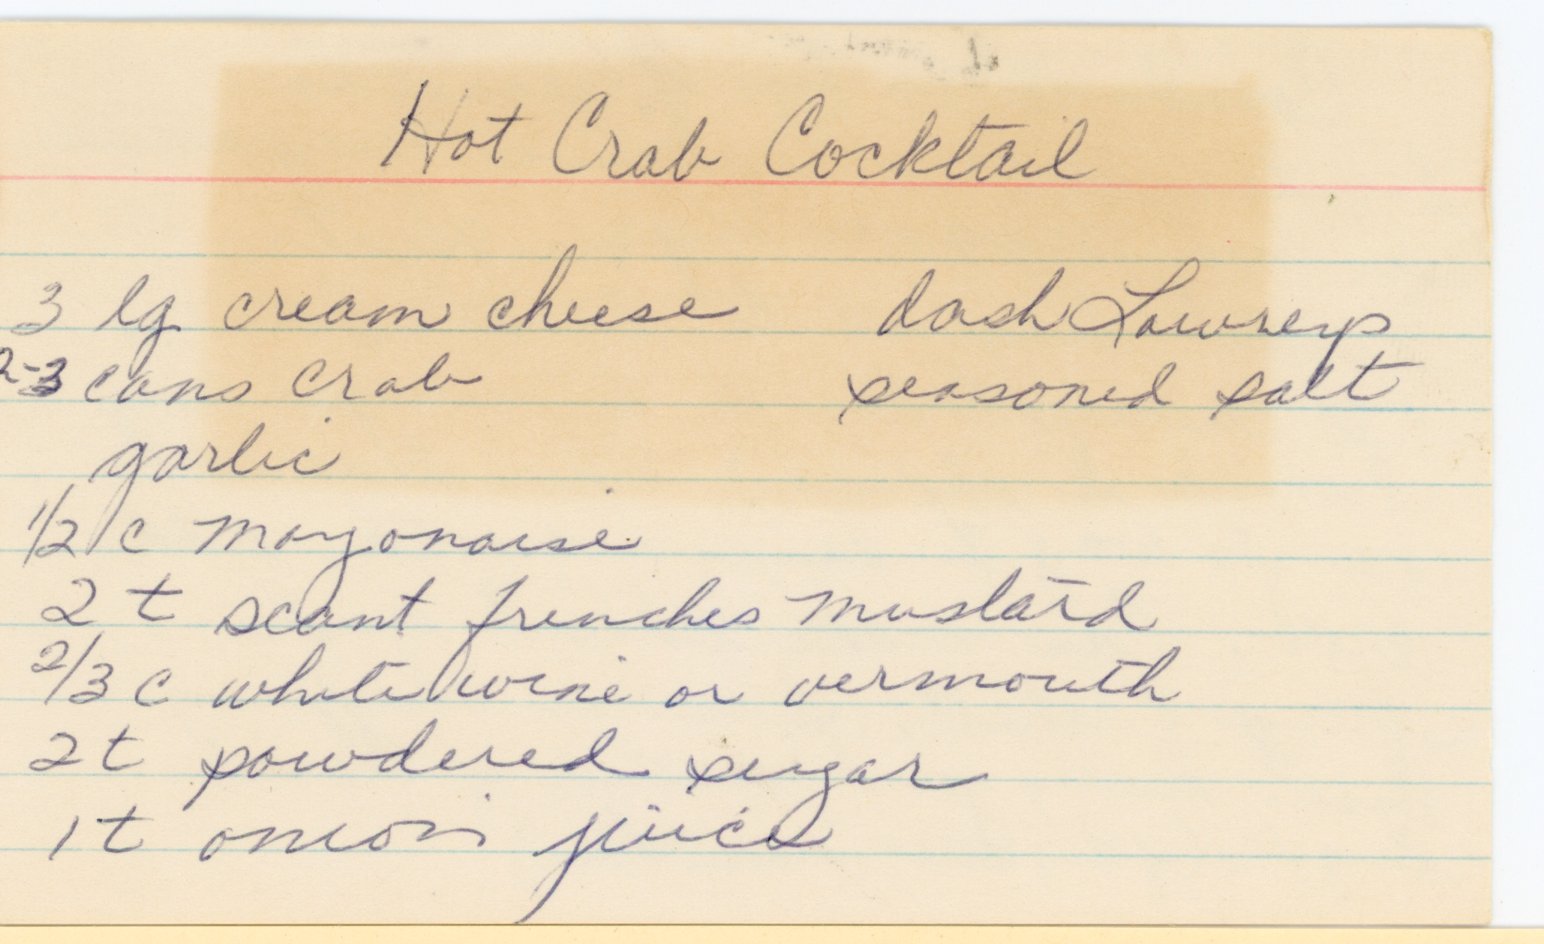 Hot Crab Cocktail
3 lg cream cheese
2-3 cans crab
garlic
1/2 c mayonaise
2 t scant frenches mustard
2/3 c white wine or vermouth
2t powdered sugar
1t onion juice
dash Lowreys
seasoned salt